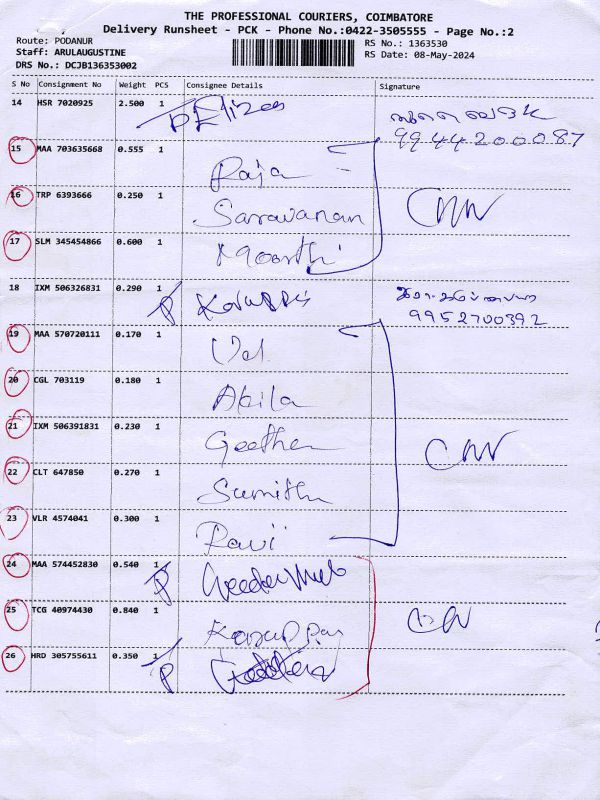 THE PROFESSIONAL COURIERS, COIMBATORE
Delivery Runsheet - PCK - Phone No.:0422-3505555 - Page No.:2
Route: PODANUR
Staff: ARULAUGUSTINE
DRS No.: DCJB136353002
RS No.: 1363530
RS Date: 08-May-2024
S No Consignment No Weight PCS Consignee Details Signature
14 HSR 7020925 2.500 1
9944200087
15 MAA 703635668 0.555 1 Raja
16 TRP 6393666 0.250 1 Saravanan
17 SLM 345454866 0.600 1 Moorthi
18 IXM 506326831 0.290 1 P
9952700392
19 MAA 570720111 0.170 1 Vel
20 CGL 703119 0.180 1 Akila
21 IXM 506391831 0.230 1 Geetha
22 CLT 647850 0.270 1 Sumithu
23 VLR 4574041 0.300 1 Ravi
24 MAA 574452830 0.540 1 P
25 TCG 40974430 0.840 1 Karuppas
26 HRD 305755611 0.350 1 P